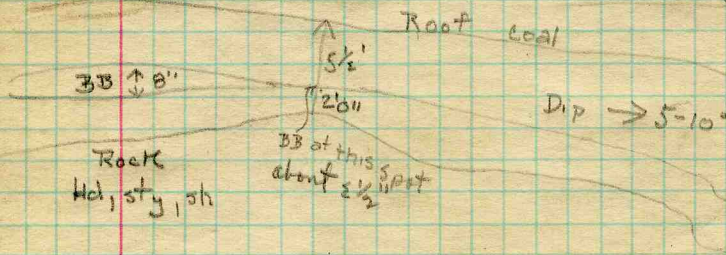 Roof coal
5½'
BB ↕ 8"
2'0"
Dip → 5-10°
BB at this spot
about
½"
Rock
Hd, sty, sh